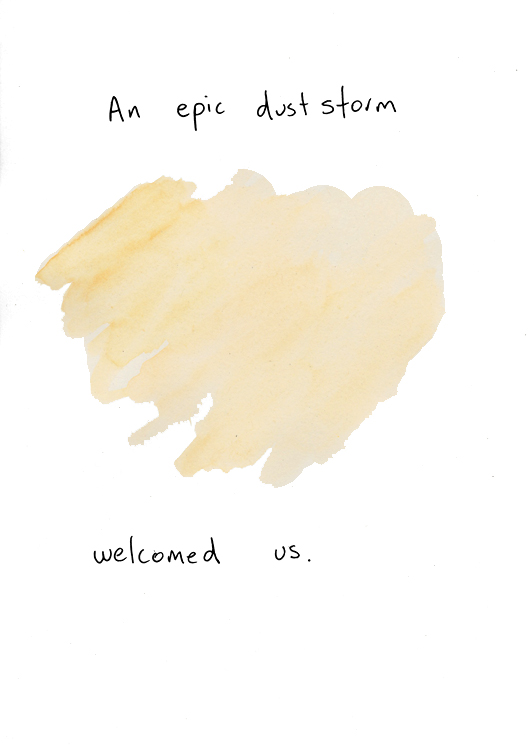 An epic dust storm
welcomed us.